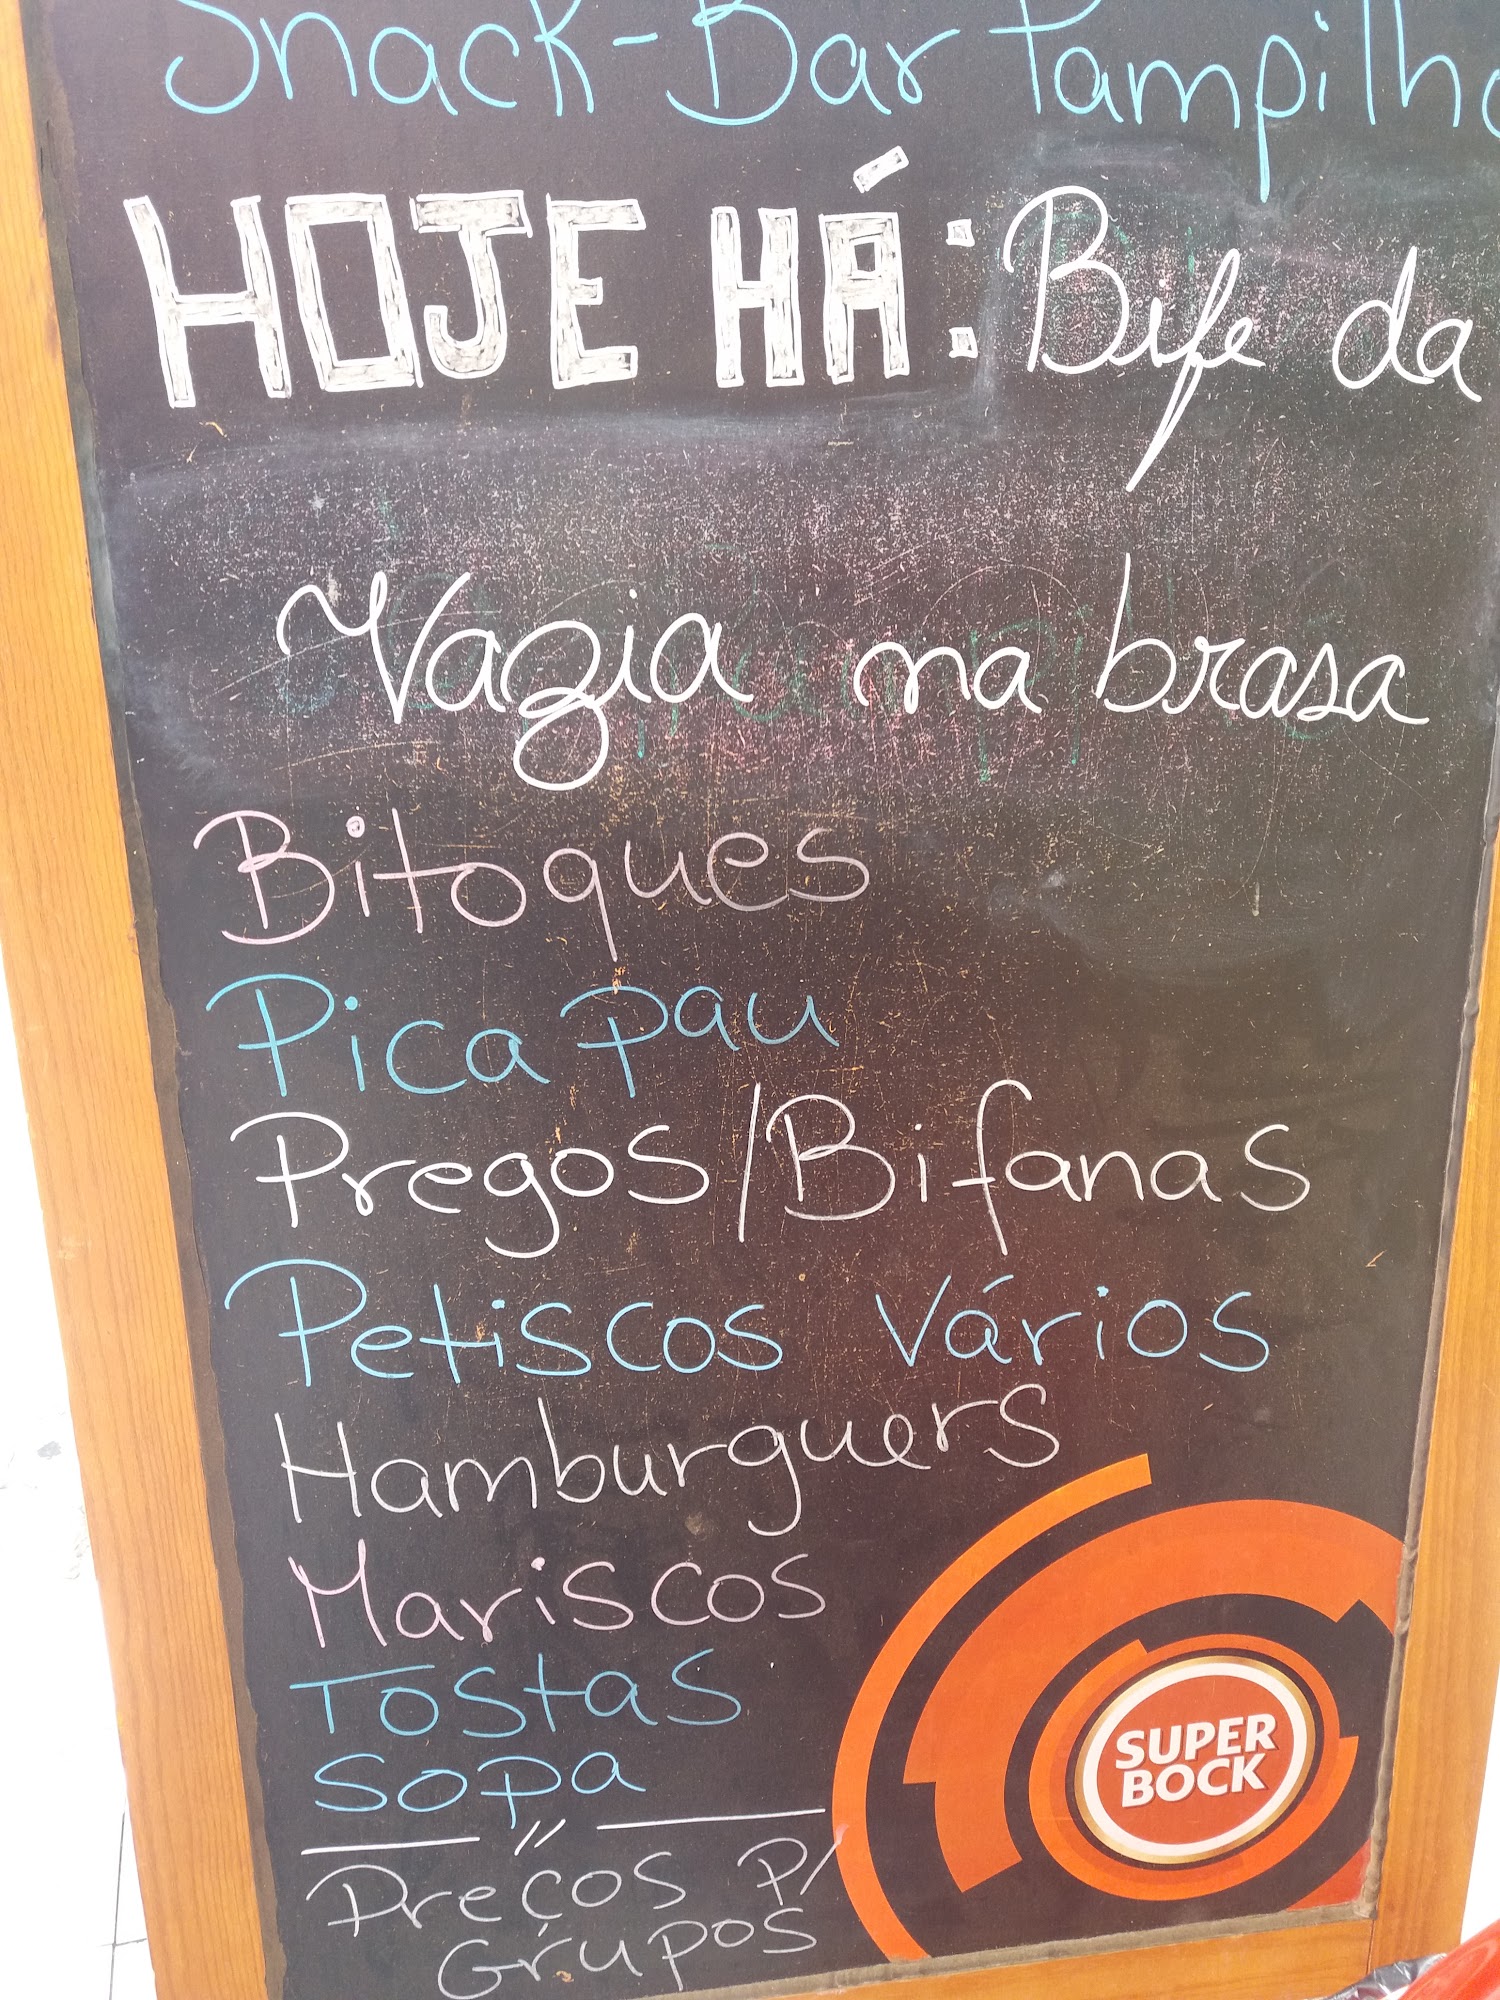 Snack-Bar Pampilho
HOJE HÁ: Bife da
Vazia na brasa
Bitoques
Pica pau
Pregos/Bifanas
Petiscos Vários
Hamburguers
Mariscos
Tostas
Sopa
—— " ——
Preços P/
Grupos
SUPER
BOCK